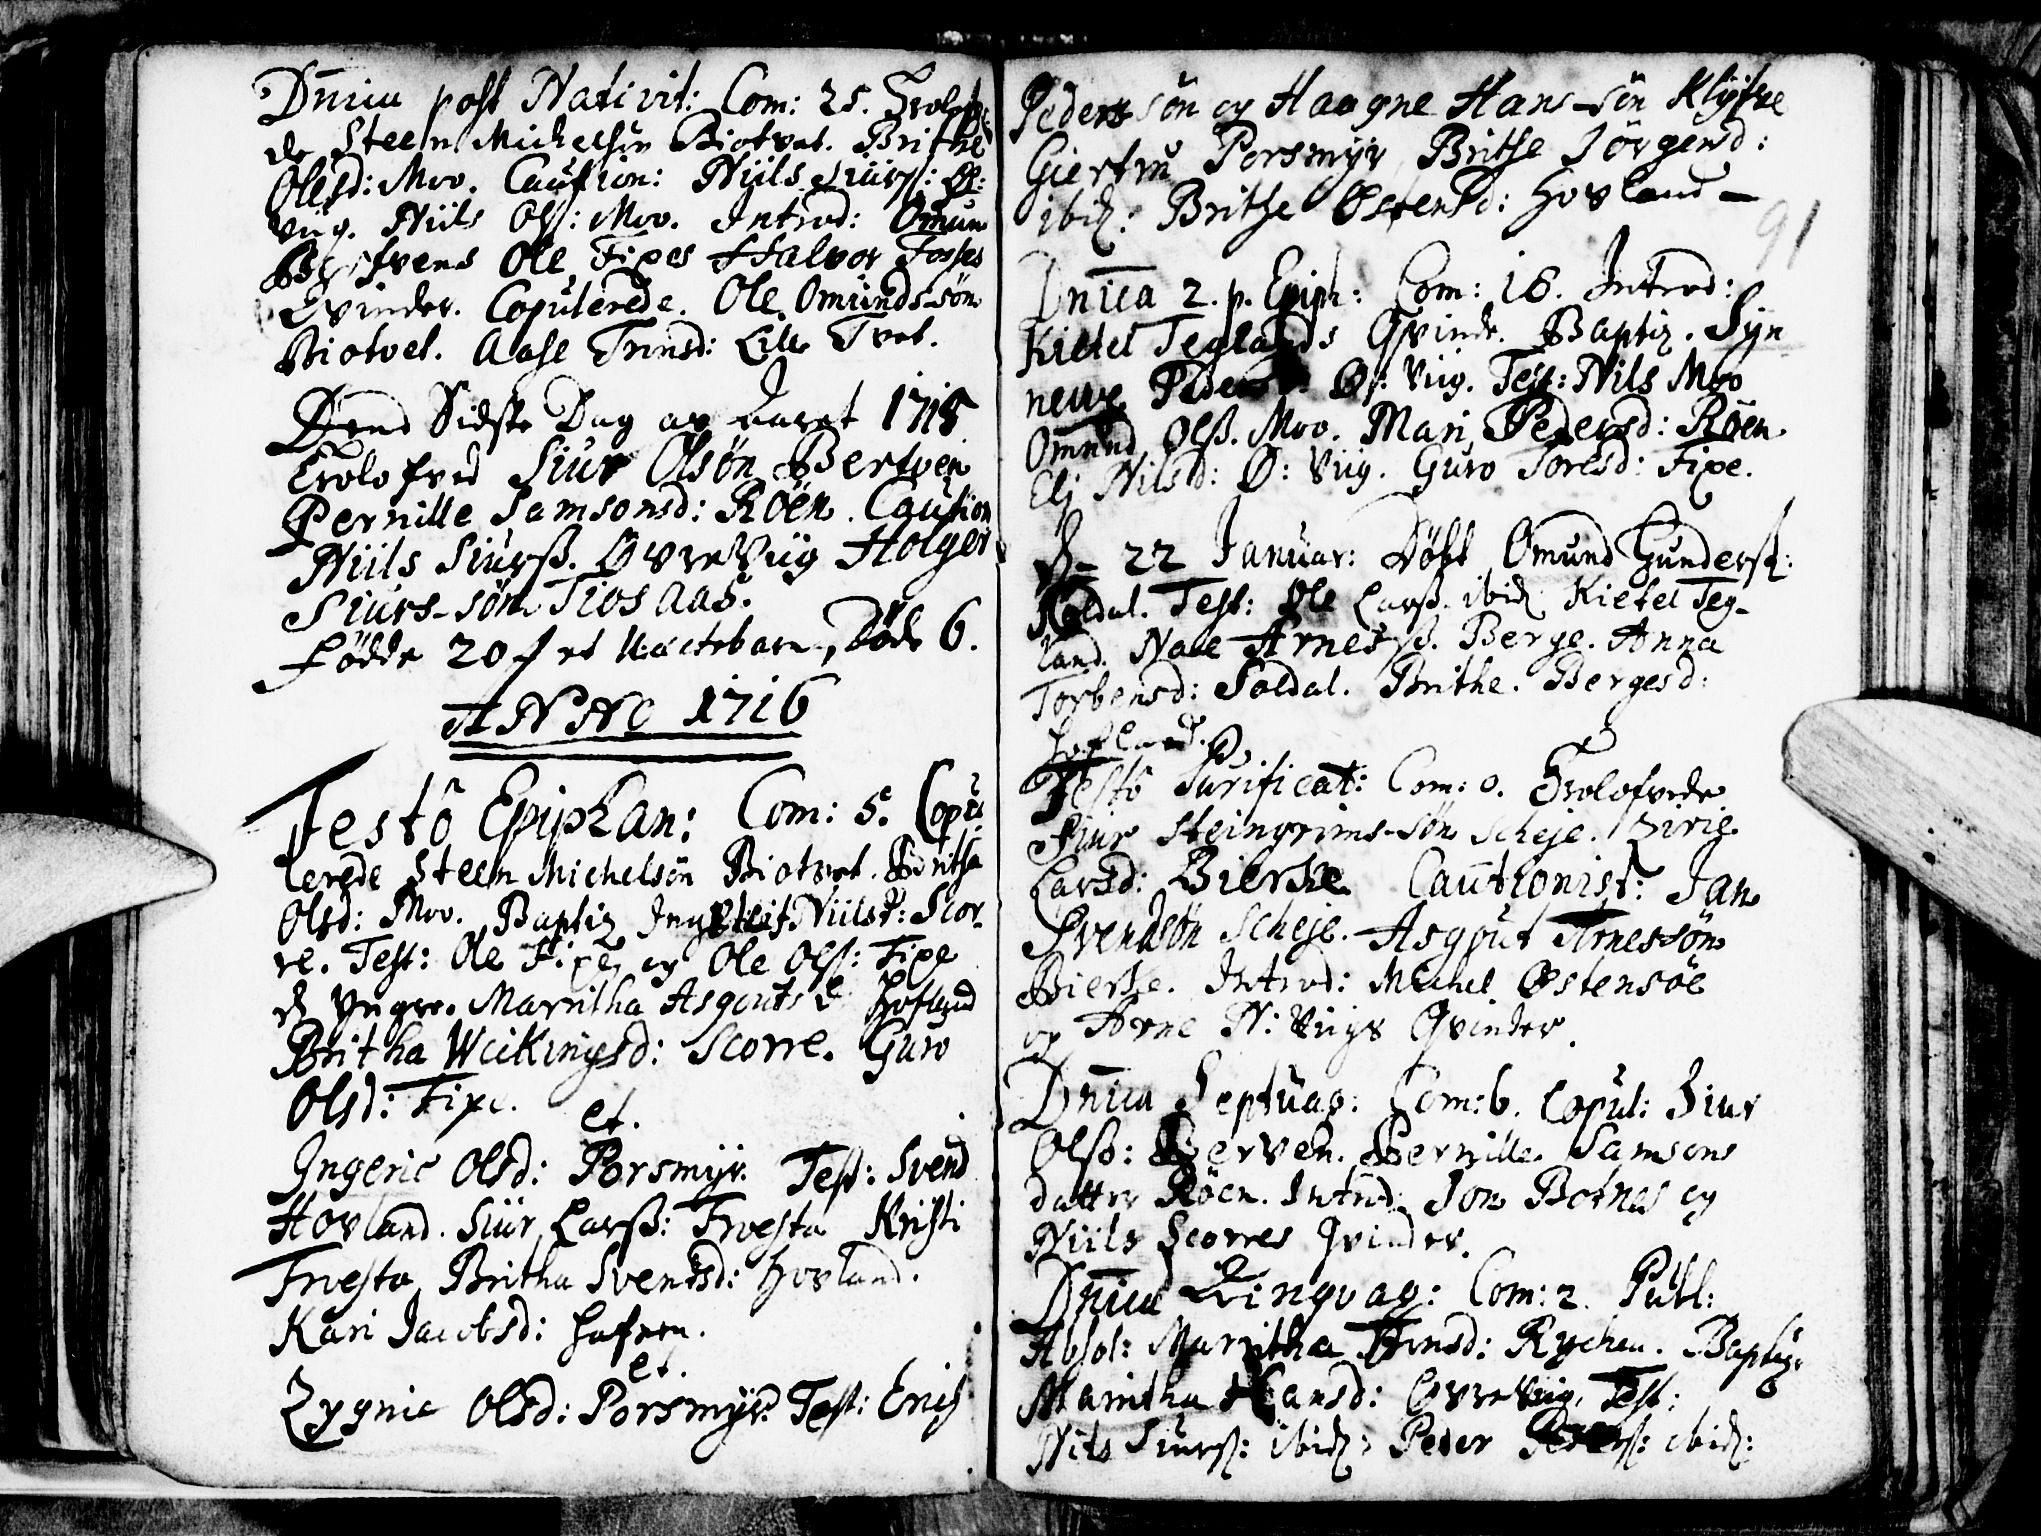 Dnica post Nativit: Com: 25. Trolofve
de Steen Michelsön Biotvet. Brithe
Olesd: Moo. Caution: Niils Siurs: Ø:
Viig. Niils Ols: Moo. Introd: Omun
Ole Fixes Halvor Fosses
Qvinder. Copulerede. Ole Omunds-sön
Biotvet. Aase Trinsd: Lille Tvet.
Dend Sidste Dag av aaret 1715
Trolofved Siur Olsön Bertven
Pernille Samsonsd: Röen. Caution
Niils Siurss. Øvre Viig Holger
Siurs-sön Tiosaas.
Födde 20 et Uæctebarn, Döde 6.
ANNO 1716
Festo Epiphan: Com: 5. Copu
lerede Steen Michelsön Biotvet. Britha
Olsd: Moo. Baptiz Niilsd: Scor-
re. Test: Ole Fixe og Ole Ols: Fixe
d Yngre. Marritha Asgoutsd Hofland
Britha Weikingsd: Scorre. Guro
Olsd: Fixe.
et.
Ingerie Olsd: Porsmyr. Test: Svend
Hovland. Siur Larss: Froesta Kristi
Froesta Britha Svendsd: Hovland.
Kari Jacobsd: Hafnen.
et.
Zygnie Olsd: Porsmyr. Test: Erich
Pedersön og Haagne Hans-sön Klyfve
Giertru Porsmyr Brithe Jörgensd:
ibid: Brithe Østensd: Hovland —
91
Dnica 2. p. Epiph: Com: 16. Introd:
Kietel Teglands Qvinde. Baptiz. Syn
neve Øf: Viig. Test: Nils Moo
Omund Olss. Moo. Mari Pedersd: Röen
Eli Nilsd: Ø: Viig. Guro Toresd: Fixe.
D 22 Januar: Döbt Omund Gunderss:
Soldal. Test: Ole Larss. ibid Kietel Teg-
land. Arness. Berge. Anna
Torbensd: Soldal. Brithe. Bergesd:
Hofland.
Festo Purificat: Com: 0. Trolofvede
Siur Steingrims-sön Scheje. Zirie
Larsd: Bierke. Cautionist: Jan
Svendsön Scheje. Asgout Arnessön
Bierke. Introd: Michel Østensöe
og Arne N: Viigs Qvinder.
Dnica Septuag: Com: 6. Copul: Siur
Olss: Berven. Pernille Samsons
datter Röen. Introd: Jon Botnes og
Niils Scorres Qvinder.
Dnica Qvinqvag: Com: 2. Publ:
Absol: Marritha Arnsd: Rychen. Baptiz
Maritha Hansd: Øvre Viig. Test:
Nils Siurss: ibid: Peder ibid: